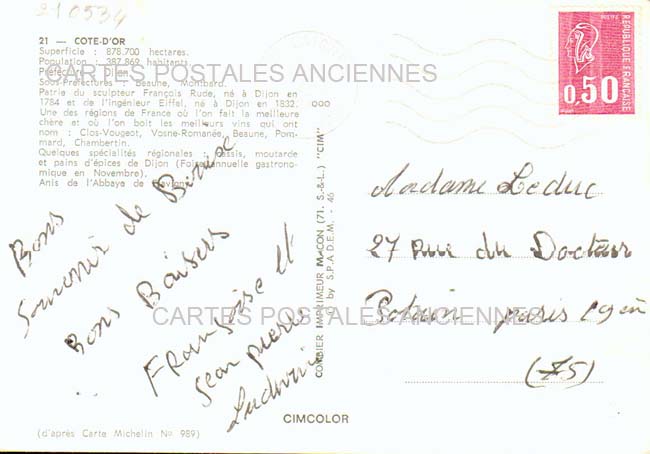 210534
21 — COTE-D'OR
Superficie : 878.700 hectares.
Population : 387.869 habitants.
Préfecture : Dijon
Sous-Préfectures : Beaune, Montbard.
Patrie du sculpteur François Rude, né à Dijon en
1784 et de l'ingénieur Eiffel, né à Dijon en 1832.
Une des régions de France où l'on fait la meilleure
chère et où l'on boit les meilleurs vins qui ont
nom : Clos-Vougeot, Vosne-Romanée, Beaune, Pom-
mard, Chambertin.
Quelques spécialités régionales : cassis, moutarde
et pains d'épices de Dijon (Foire annuelle gastrono-
mique en Novembre).
Anis de l'Abbaye de Flavigny
CARTES POSTALES ANCIENNES
Bons
Souvenir de
Bons Baisers
Françoise et
Jean pierre
CARTES POSTALES ANCIENNES
(d'après Carte Michelin No 989)
CIMCOLOR
000
COMBIER IMPRIMEUR MACON (71. S.-&-L.) "CIM"
© by S.P.A.D.E.M. - 46
REPUBLIQUE FRANÇAISE
0,50
Madame Leduc
27 Rue du Docteur
Potain paris 19en
(75)